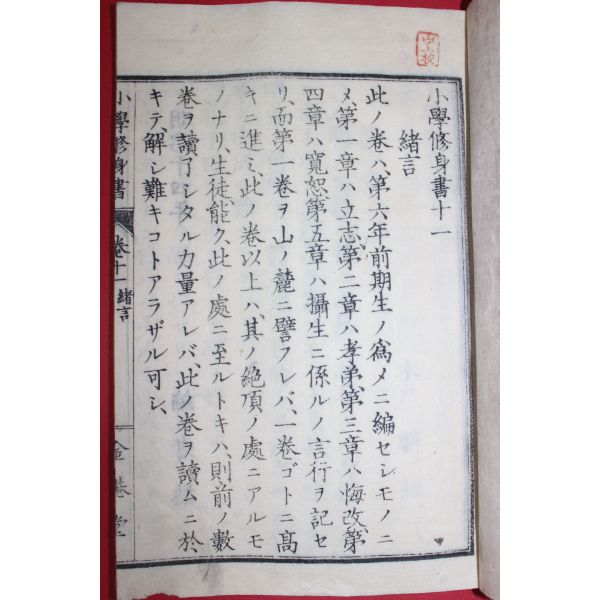 小學修身書十一
緒言
此ノ卷ハ、第六年前期生ノ爲メニ編セシモノニ
メ、第一章ハ立志、第二章ハ孝弟、第三章ハ悔改、第
四章ハ寬恕、第五章ハ攝生ニ係ルノ言行ヲ記セ
リ、而第一卷ヲ山ノ麓ニ譬フレバ、一卷ゴトニ高
キニ進ミ、此ノ卷以上ハ、其ノ絶頂ノ處ニアルモ
ノナリ、生徒能ク、此ノ處ニ至ルトキハ、則前ノ數
卷ヲ讀了シタル力量アレバ、此ノ卷ヲ讀ムニ於
キテ、解シ難キコトアラザル可シ、
小學修身書
卷十一
緒言
金港堂